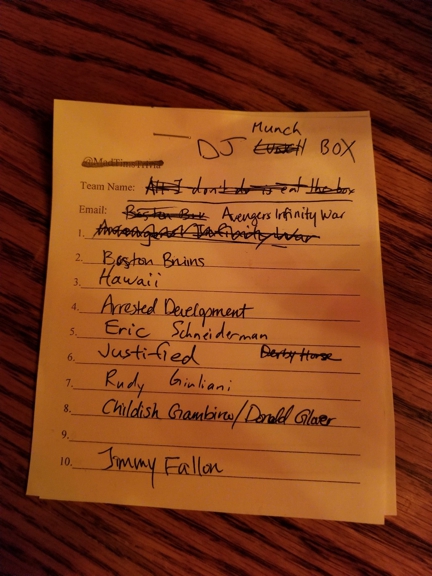 Munch
DJ Lunch BOX
@ModTimeTrivia
Team Name: All I don't do is eat the box
Email: Boston Box Avengers Infinity War
1. Avengers Infinity War
2. Boston Bruins
3. Hawaii
4. Arrested Development
5. Eric Schneiderman
6. Justified Derby Horse
7. Rudy Giuliani
8. Childish Gambino/Donald Glover
9.
10. Jimmy Fallon